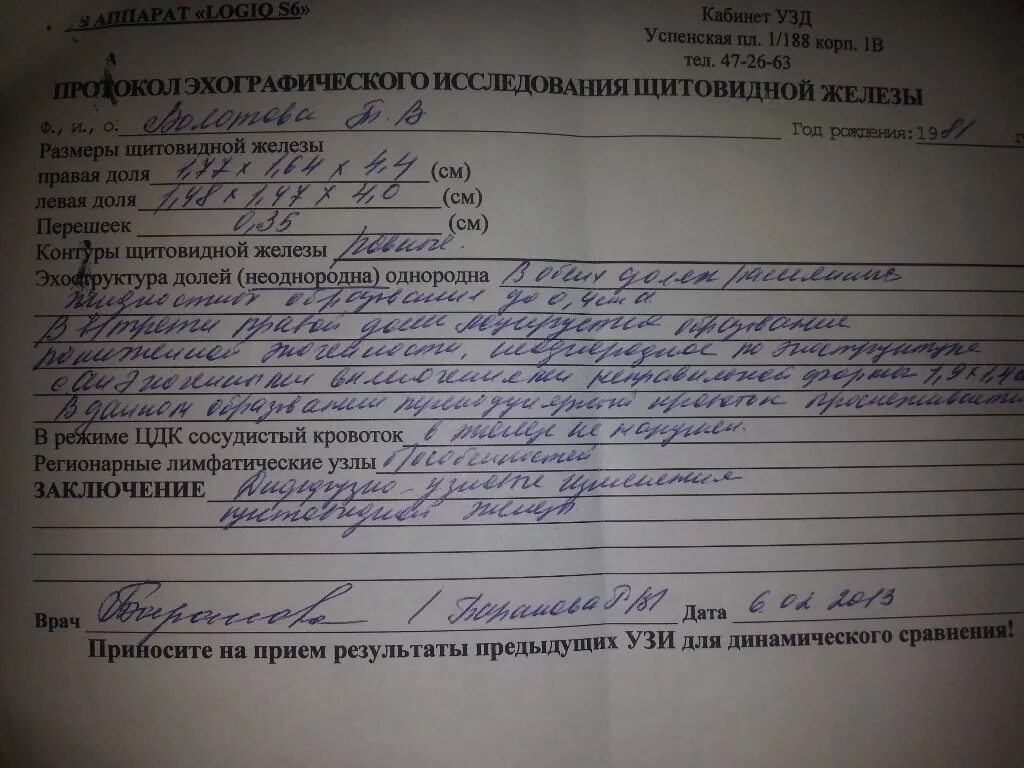 АППАРАТ «LOGIQ S6»
Кабинет УЗД
Успенская пл. 1/188 корп. 1В
тел. 47-26-63
ПРОТОКОЛ ЭХОГРАФИЧЕСКОГО ИССЛЕДОВАНИЯ ЩИТОВИДНОЙ ЖЕЛЕЗЫ
Ф., и., о. Волотова Т. В Год рождения: 1981 г
Размеры щитовидной железы
правая доля 1,77 х 1,64 х 4,4 (см)
левая доля 1,48 х 1,47 х 4,0 (см)
Перешеек 0,35 (см)
Контуры щитовидной железы ровные.
Эхоструктура долей (неоднородна) однородна В обеих долях
жидностные образования до 0,4см
В в/трети правой доли лоцируется образование
пониженной эхогенности, неоднородное по эхоструктуре
с ан эхогенными включениями неправильной формы 1,9 х 1,4
В данном образовании перинодулярный кровоток прослеживается
В режиме ЦДК сосудистый кровоток в не нарушен.
Регионарные лимфатические узлы б/особенностей
ЗАКЛЮЧЕНИЕ Диффузно-узловые изменения
щитовидной железы
Врач Баранова / Баранова Д﻿ата 6.02.2013
Приносите на прием результаты предыдущих УЗИ для динамического сравнения!